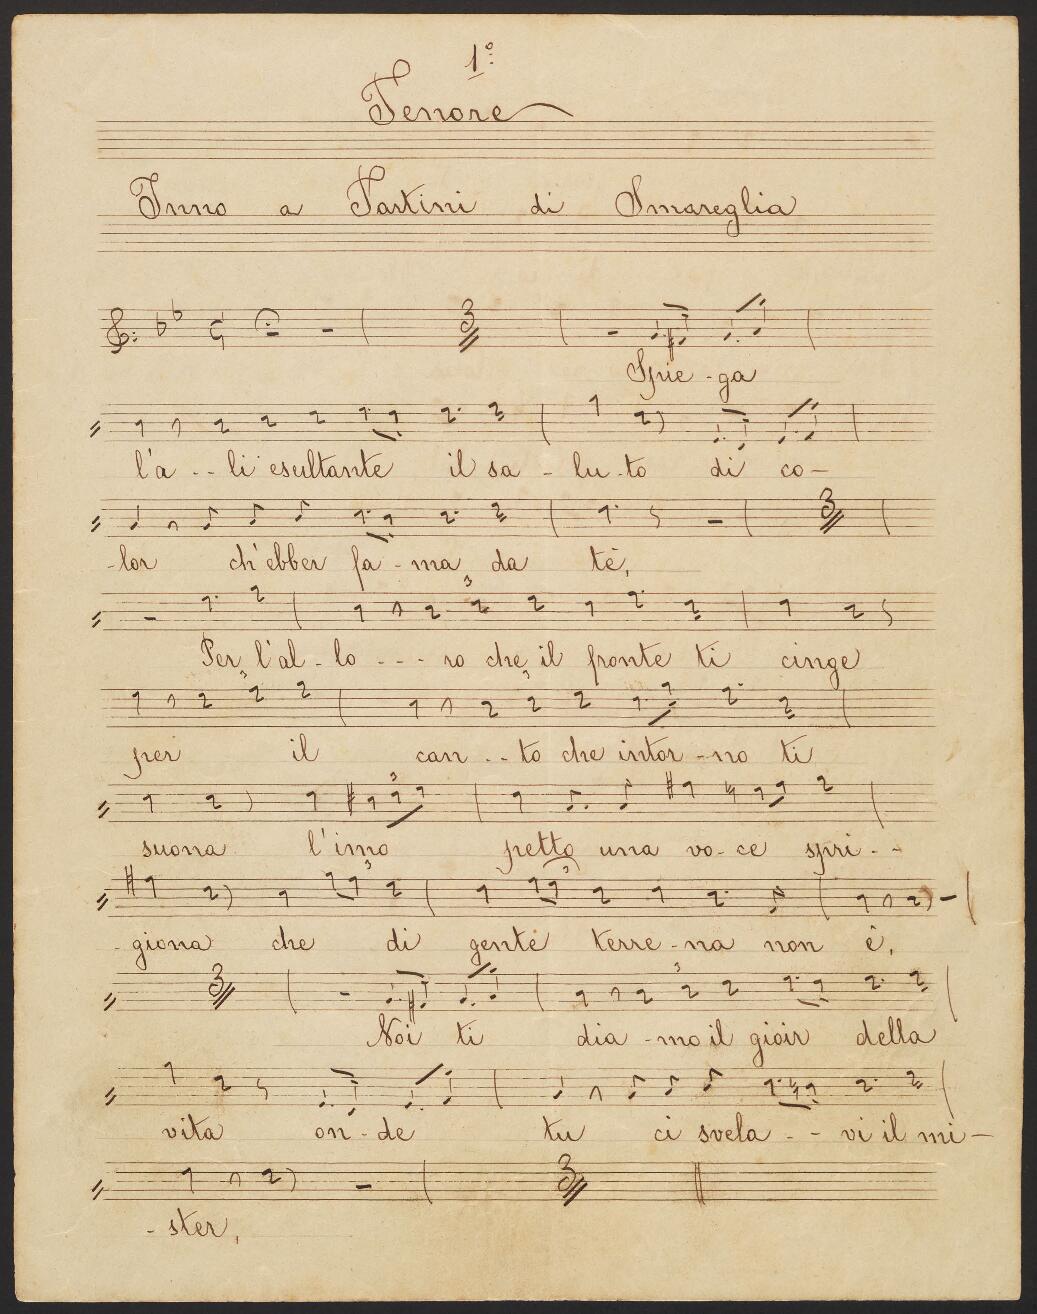 1º
Tenore
Inno a Tartini di Smareglia
3
Spie - ga
l'a - - li esultante il sa - lu - to di co -
3
- lor ch'ebber fa - ma da tè,
3
Per l'al - lo - - - ro che il fronte ti cinge
3 3
per il can - - to che intor - no ti
3
suona l'imo petto una vo - ce spri - -
3 3
- giona che di gente terre - na non è,
3
3
Noi ti dia - mo il gioir della
vita on - de tu ci svela - - vi il mi -
3
- ster,